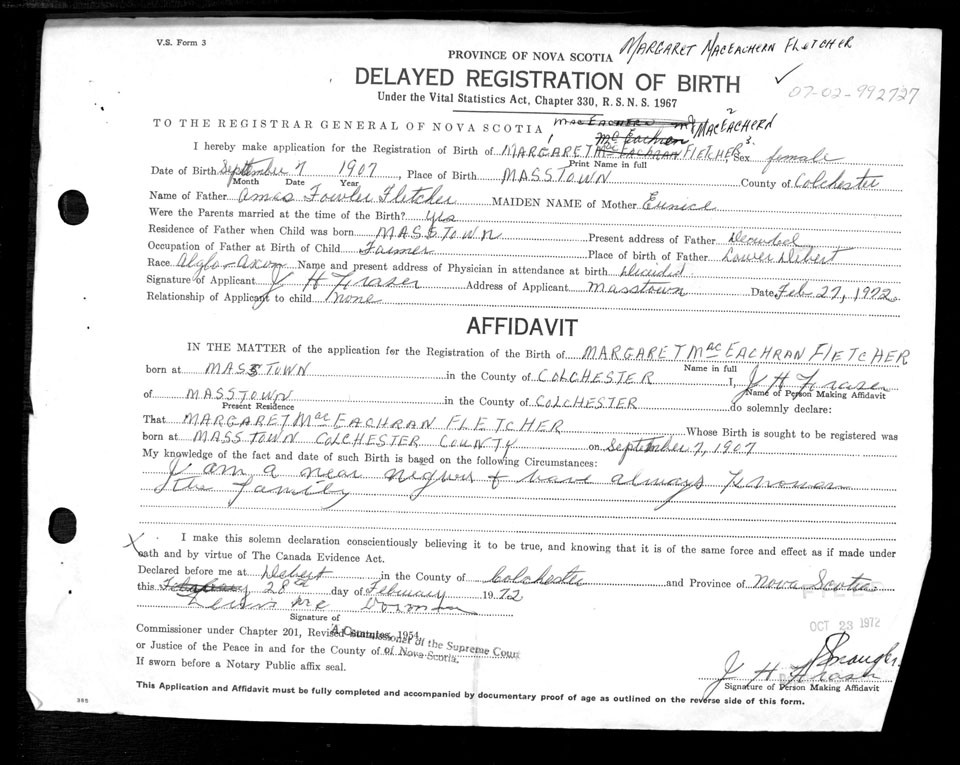 V.S. Form 3
MARGARET MACEACHERN FLETCHER
PROVINCE OF NOVA SCOTIA
DELAYED REGISTRATION OF BIRTH
07-02-992727
Under the Vital Statistics Act, Chapter 330, R. S. N. S. 1967
MACEACHERN
TO THE REGISTRAR GENERAL OF NOVA SCOTIA
MacEachern
I hereby make application for the Registration of Birth of MARGARET MacEACHRAN FLETCHER Sex female
Print Name in full
Date of Birth September 7 1907, Place of Birth MASSTOWN County of Colchester
Month Date Year
Name of Father Amos Fowler Fletcher MAIDEN NAME of Mother Eunice
Were the Parents married at the time of the Birth? yes
Residence of Father when Child was born MASSTOWN Present address of Father Deceided
Occupation of Father at Birth of Child Farmer Place of birth of Father Lower Debert
Race Alglo-Axon Name and present address of Physician in attendance at birth Dicided
Signature of Applicant J H Fraser Address of Applicant Masstown Date Feb 27, 1972
Relationship of Applicant to child None
AFFIDAVIT
IN THE MATTER of the application for the Registration of the Birth of MARGARET MacEACHRAN FLETCHER
Name in full
born at MASSTOWN in the County of COLCHESTER I, J H Fraser
Name of Person Making Affidavit
of MASSTOWN in the County of COLCHESTER do solemnly declare:
Present Residence
That MARGARET MacEACHRAN FLETCHER Whose Birth is sought to be registered was
born at MASSTOWN COLCHESTER COUNTY on September 7, 1907
My knowledge of the fact and date of such Birth is based on the following Circumstances:
I am a near & have always
the family
X I make this solemn declaration conscientiously believing it to be true, and knowing that it is of the same force and effect as if made under
oath and by virtue of The Canada Evidence Act.
Declared before me at Debert in the County of Colchester and Province of Nova Scotia
this February 28th day of February 1972
Signature of
OCT 23 1972
Commissioner under Chapter 201, Revised Statutes, 1954
A Commissioner of the Supreme Court
or Justice of the Peace in and for the County of
of Nova Scotia.
If sworn before a Notary Public affix seal.
J H Fraser
Signature of Person Making Affidavit
This Application and Affidavit must be fully completed and accompanied by documentary proof of age as outlined on the reverse side of this form.
385